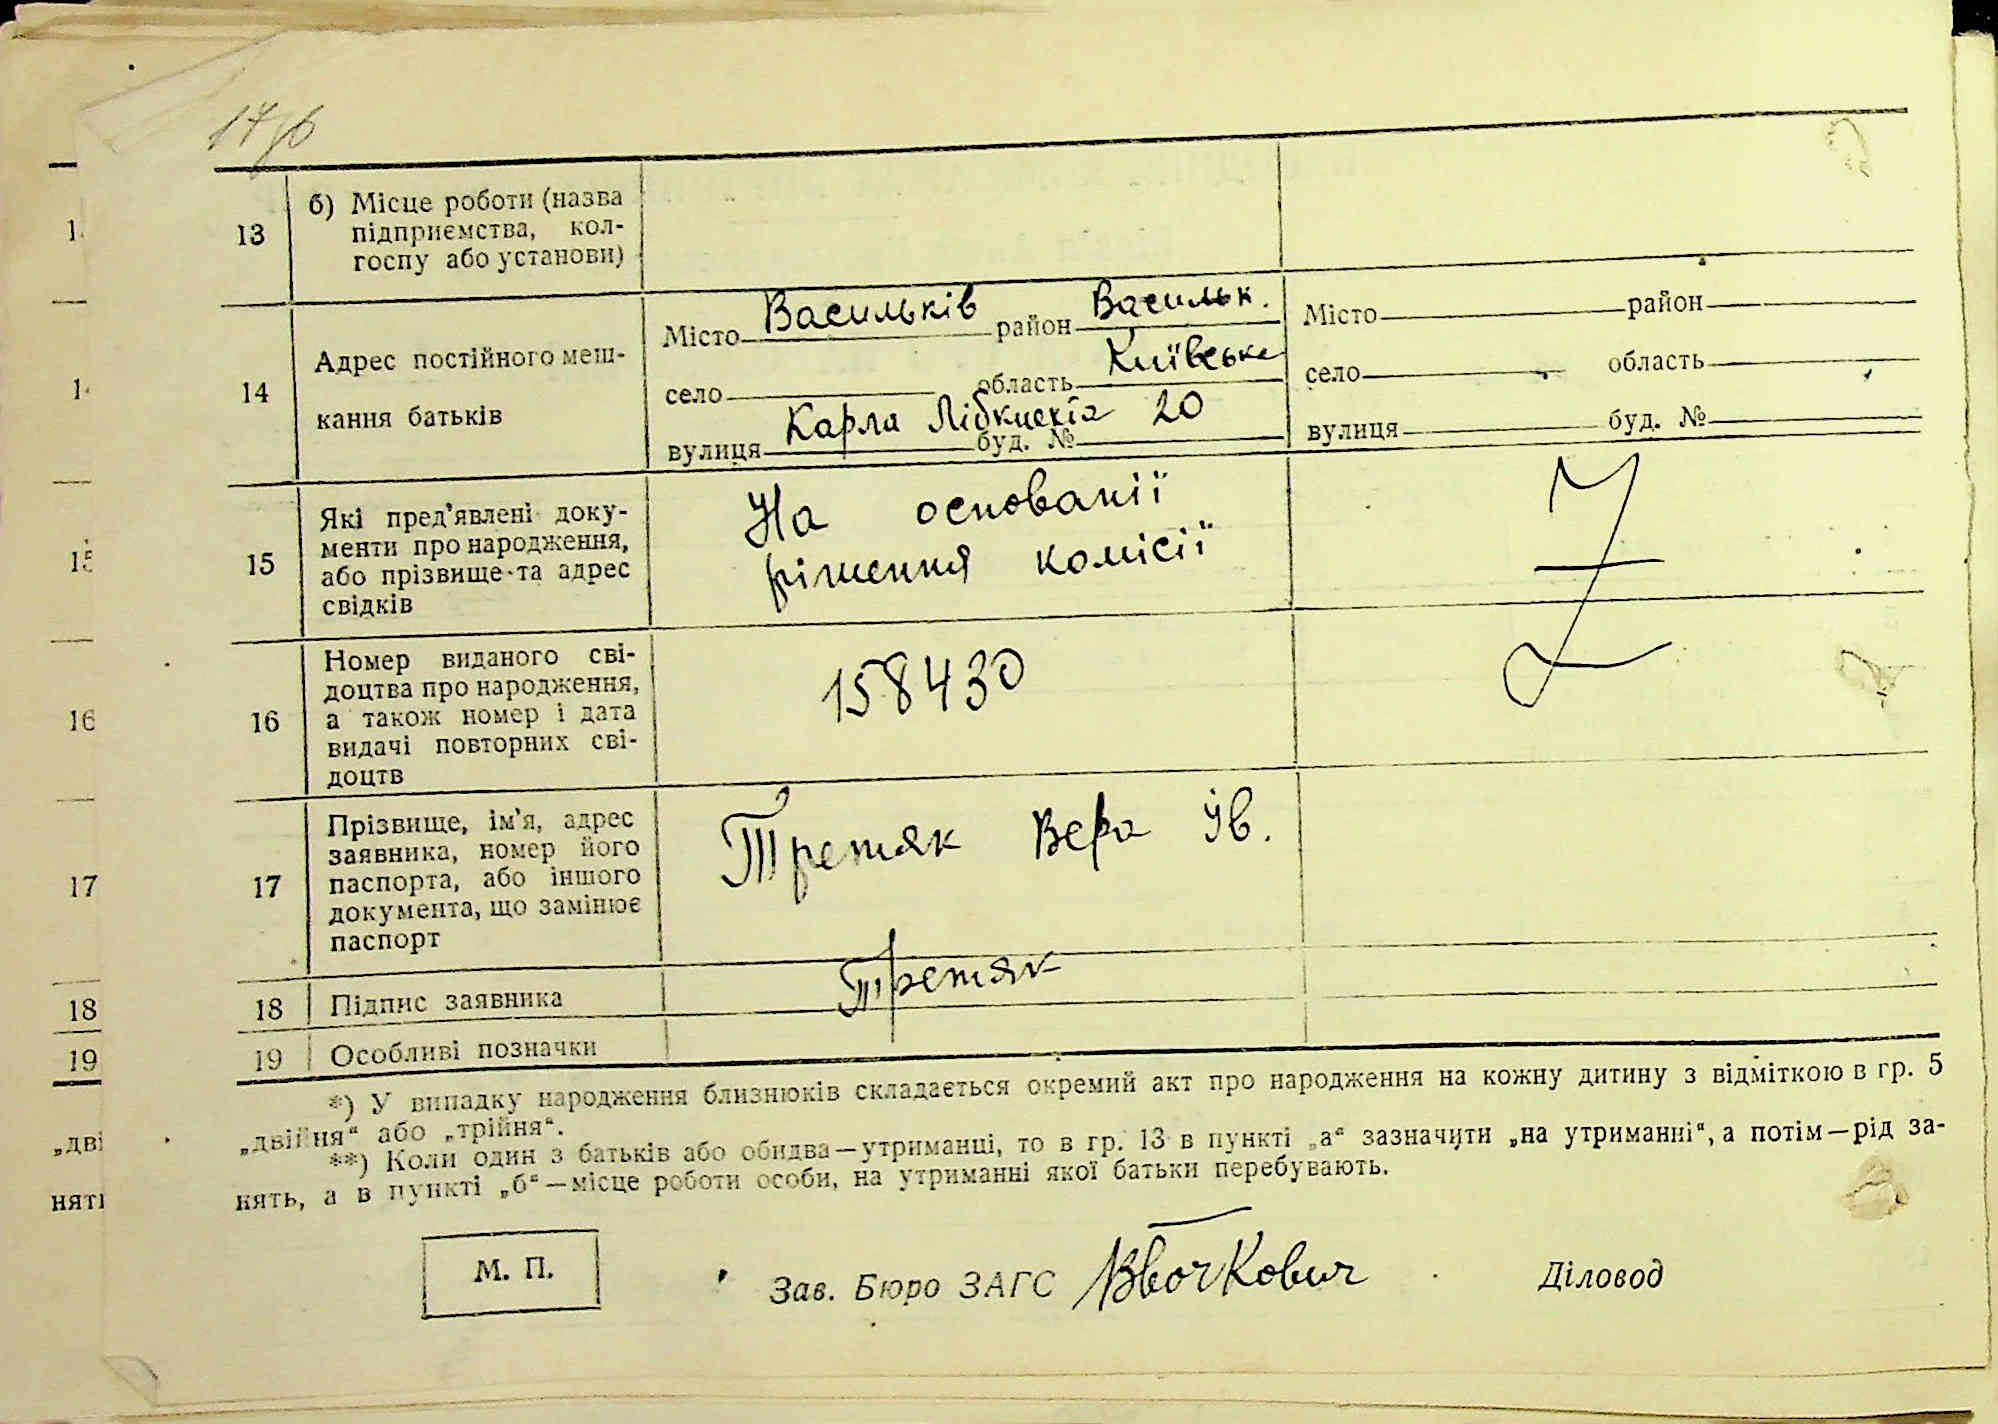 13 б) Місце роботи (назва
підприємства, кол-
госпу або установи)
14 Адрес постійного меш-
кання батьків
Місто Васильків район Васильк.
село область Київська
вулиця Карла Лібкнехта буд. № 20
Місто район
село область
вулиця буд. №
15 Які пред'явлені доку-
менти про народження,
або прізвище та адрес
свідків
На основанії
рішення комісії
16 Номер виданого сві-
доцтва про народження,
а також номер і дата
видачі повторних сві-
доцтв
158430
17 Прізвище, ім'я, адрес
заявника, номер його
паспорта, або іншого
документа, що замінює
паспорт
Третяк Вера Ів.
18 Підпис заявника Третяк
19 Особливі позначки
*) У випадку народження близнюків складається окремий акт про народження на кожну дитину з відміткою в гр. 5
„двійня“ або „трійня“.
**) Коли один з батьків або обидва—утриманці, то в гр. 13 в пункті „а“ зазначити „на утриманні“, а потім—рід за-
нять, а в пункті „б“—місце роботи особи, на утриманні якої батьки перебувають.
М. П.
Зав. Бюро ЗАГС
Діловод
16
17
18
19
„дві
няті